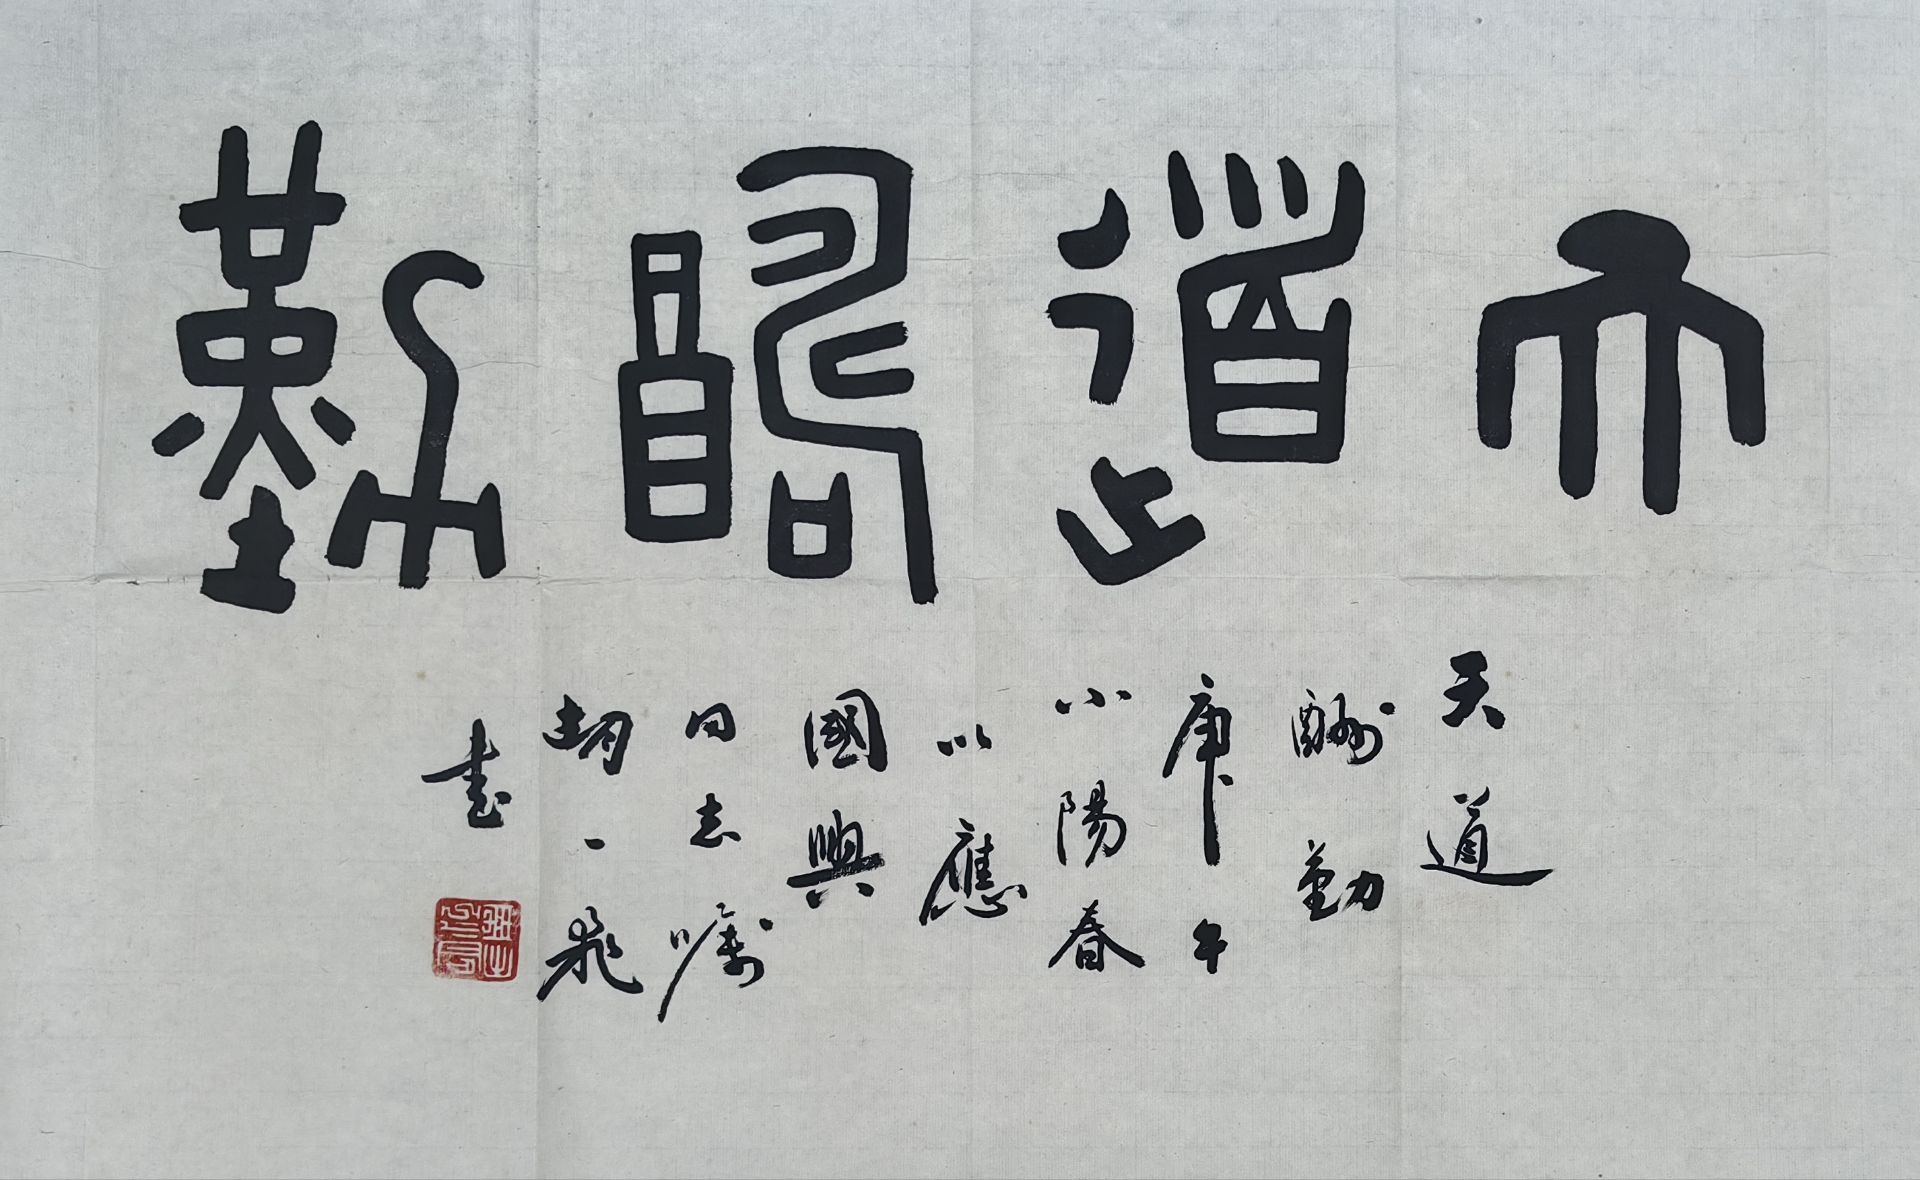 天道酬勤
天道
酬勤
庚午
小陽春
以應
國興
同志囑
一飛
書